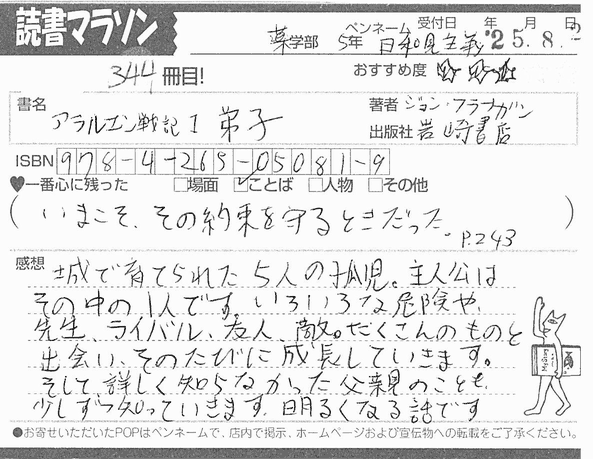 読書マラソン
ペンネーム 受付日 年 月 日
薬学部 5年 日和見主義 '25.8.2
344冊目! おすすめ度
書名
アラルエン戦記1 弟子
著者 ジョン・フラナガン
出版社 岩崎書店
ISBN 978-4-265-05081-9
♥一番心に残った □場面 ☑ことば □人物 □その他
(いまこそ、その約束を守るときだった。P.243)
感想
城で育てられた5人の孤児。主人公は
その中の1人です。いろいろな危険や、
先生、ライバル、友人、敵。たくさんのものと
出会い、そのたびに成長していきます。
そして、詳しく知らなかった父親のことも、
少しずつ知っていきます。明るくなる話です
●お寄せいただいたPOPはペンネームで、店内で掲示、ホームページおよび宣伝物への転載をご了承ください。